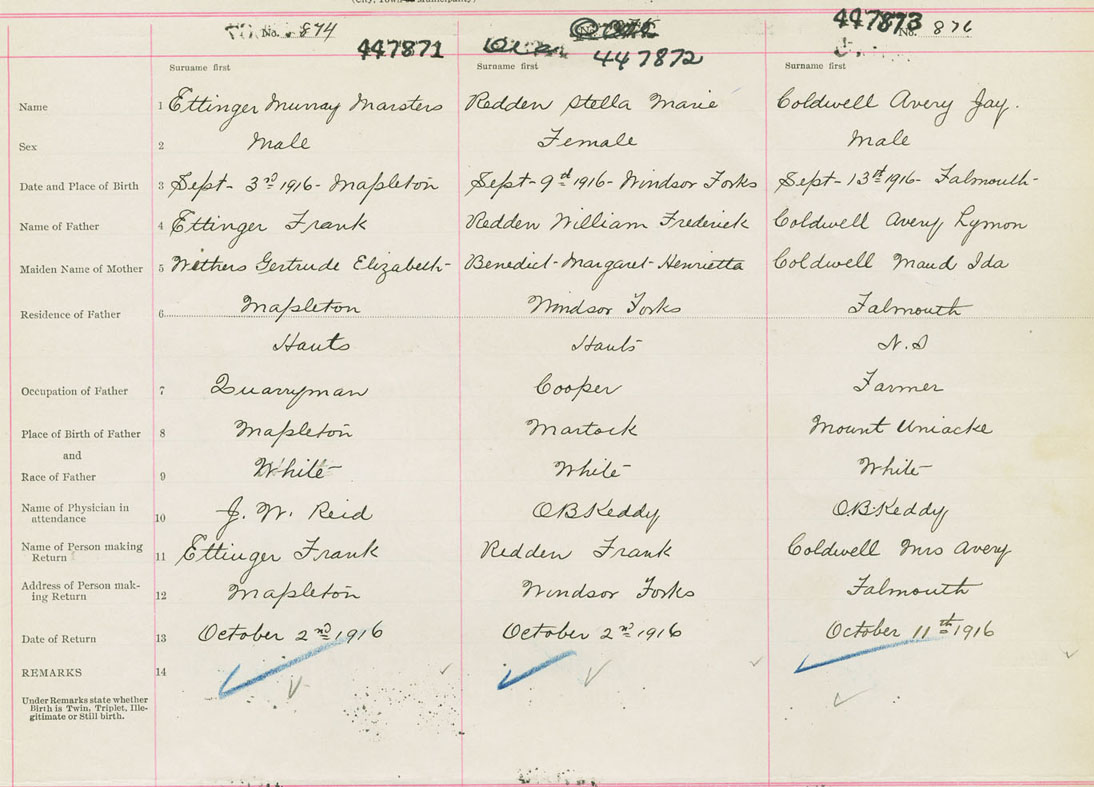 (City, Town or Municipality)
No. 874 447871 447872 447873 No. 876
Surname first Surname first Surname first
Name 1 Ettinger Murray Marsters Redden Stella Marie Coldwell Avery Jay.
Sex 2 Male Female Male
Date and Place of Birth 3 Sept- 3rd 1916- Mapleton Sept- 9d 1916- Windsor Forks Sept- 13th 1916- Falmouth-
Name of Father 4 Ettinger Frank Redden William Frederick Coldwell Avery Lymon
Maiden Name of Mother 5 Wethers Gertrude Elizabeth- Benedict- Margaret- Henrietta Coldwell Maud Ida
Residence of Father 6 Mapleton Windsor Forks Falmouth
Hants Hants N.S
Occupation of Father 7 Quarryman Cooper Farmer
Place of Birth of Father 8 Mapleton Martock Mount Uniacke
and
Race of Father 9 White White White
Name of Physician in attendance 10 J. W. Reid O B Keddy O.B Keddy
Name of Person making Return 11 Ettinger Frank Redden Frank Coldwell Mrs Avery
Address of Person mak-ing Return 12 Mapleton Windsor Forks Falmouth
Date of Return 13 October 2nd 1916 October 2nd 1916 October 11th 1916
REMARKS 14
Under Remarks state whether
Birth is Twin, Triplet, Ille-
gitimate or Still birth.